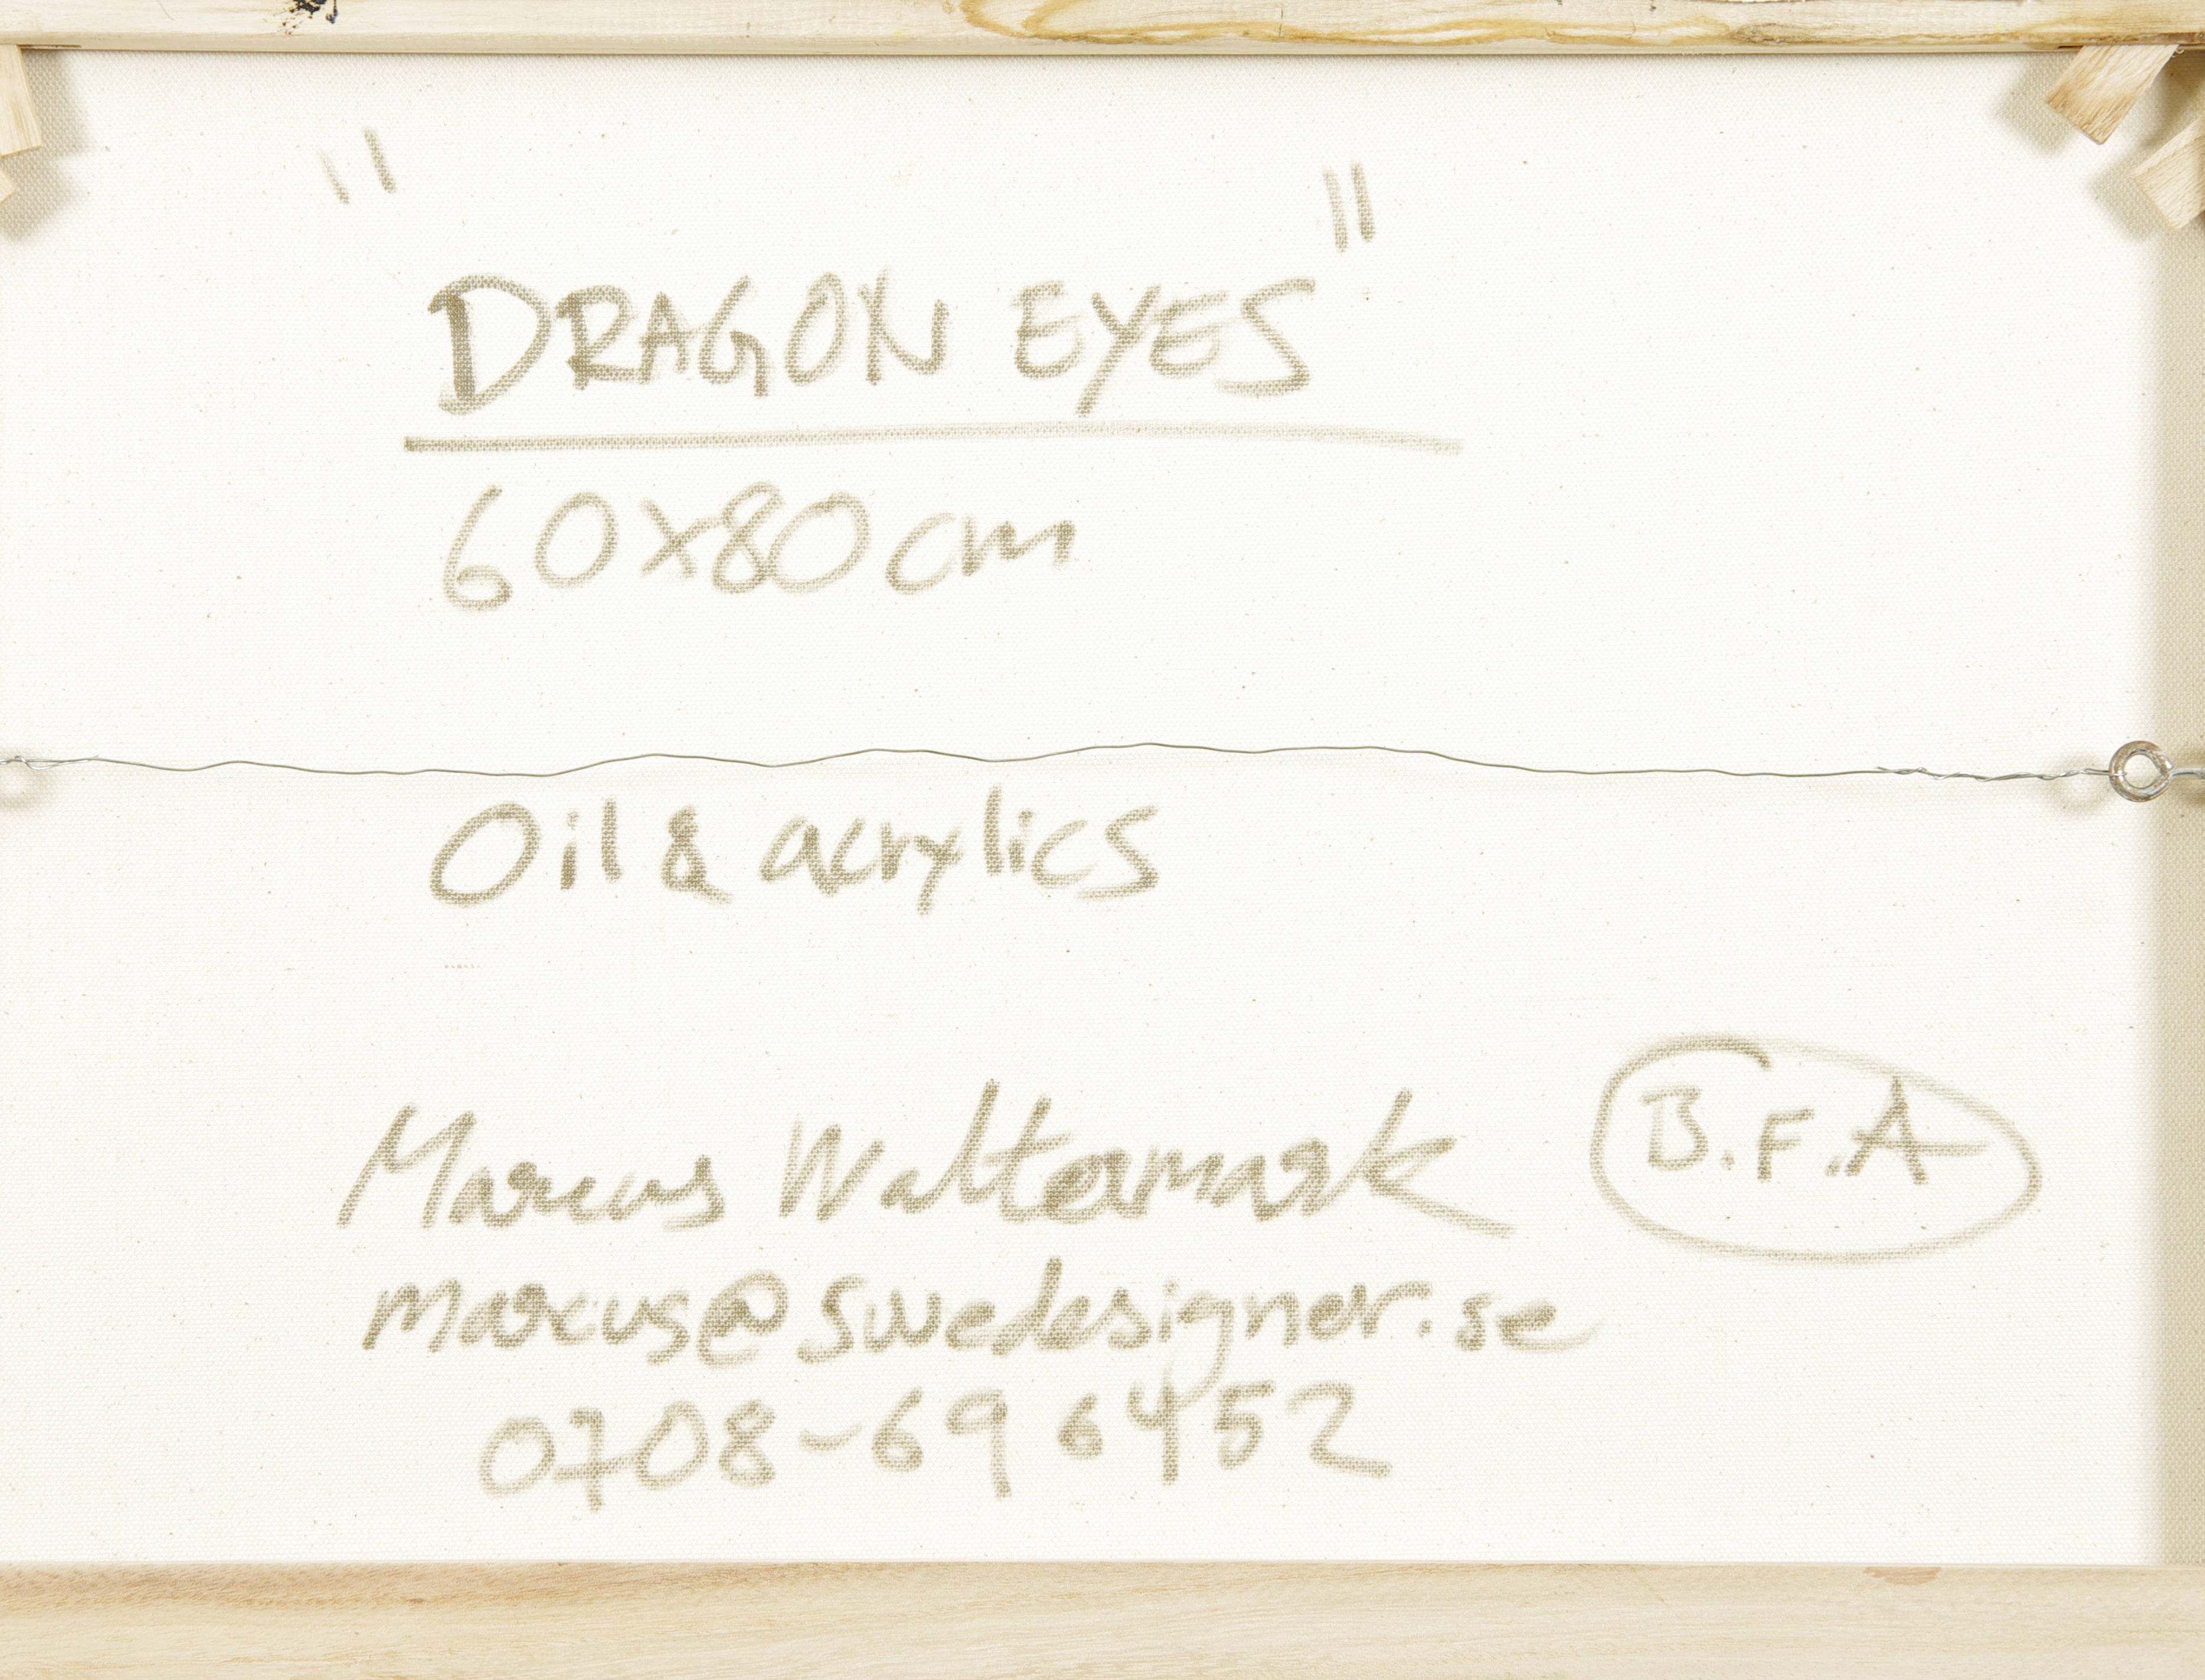 "DRAGON EYES"
60x80cm
Oil & acrylics
Marcus Waltermark
B.F.A
marcus@swedesigner.se
0708-69 6452